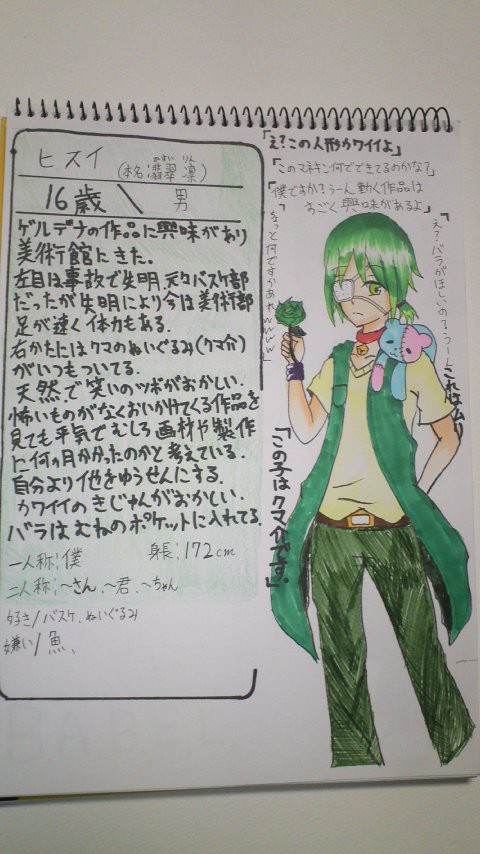 ヒスイ
(本名:翡翠 凛)
ひすい りん
16歳 \ 男
ゲルテナの作品に興味があり
美術館にきた。
左目は事故で失明、元々バスケ部
だったが失明により今は美術部
足が速く体力もある。
右かたにはクマのぬいぐるみ(クマ介)
がいつもついてる。
天然で笑いのツボがおかしい。
怖いものがなくおいかけてくる作品を
見ても平気でむしろ画材や製作
に何ヵ月かかったのかと考えている。
自分より他をゆうせんにする。
カワイイのきじゅんがおかしい。
バラはむねのポケットに入れてる。
一人称:僕 身長:172cm
二人称:〜さん、〜君、〜ちゃん
好き/バスケ、ぬいぐるみ
嫌い/魚、
「え?この人形カワイイよ」
「このマネキン何でできてるのかな?」
「僕ですか?うーん動く作品は
すごく興味があるよ」
「ちょっと何ですかあれwwww」
「え?バラがほしいの?うーんこれはムリ」
「この子はクマ介です。」